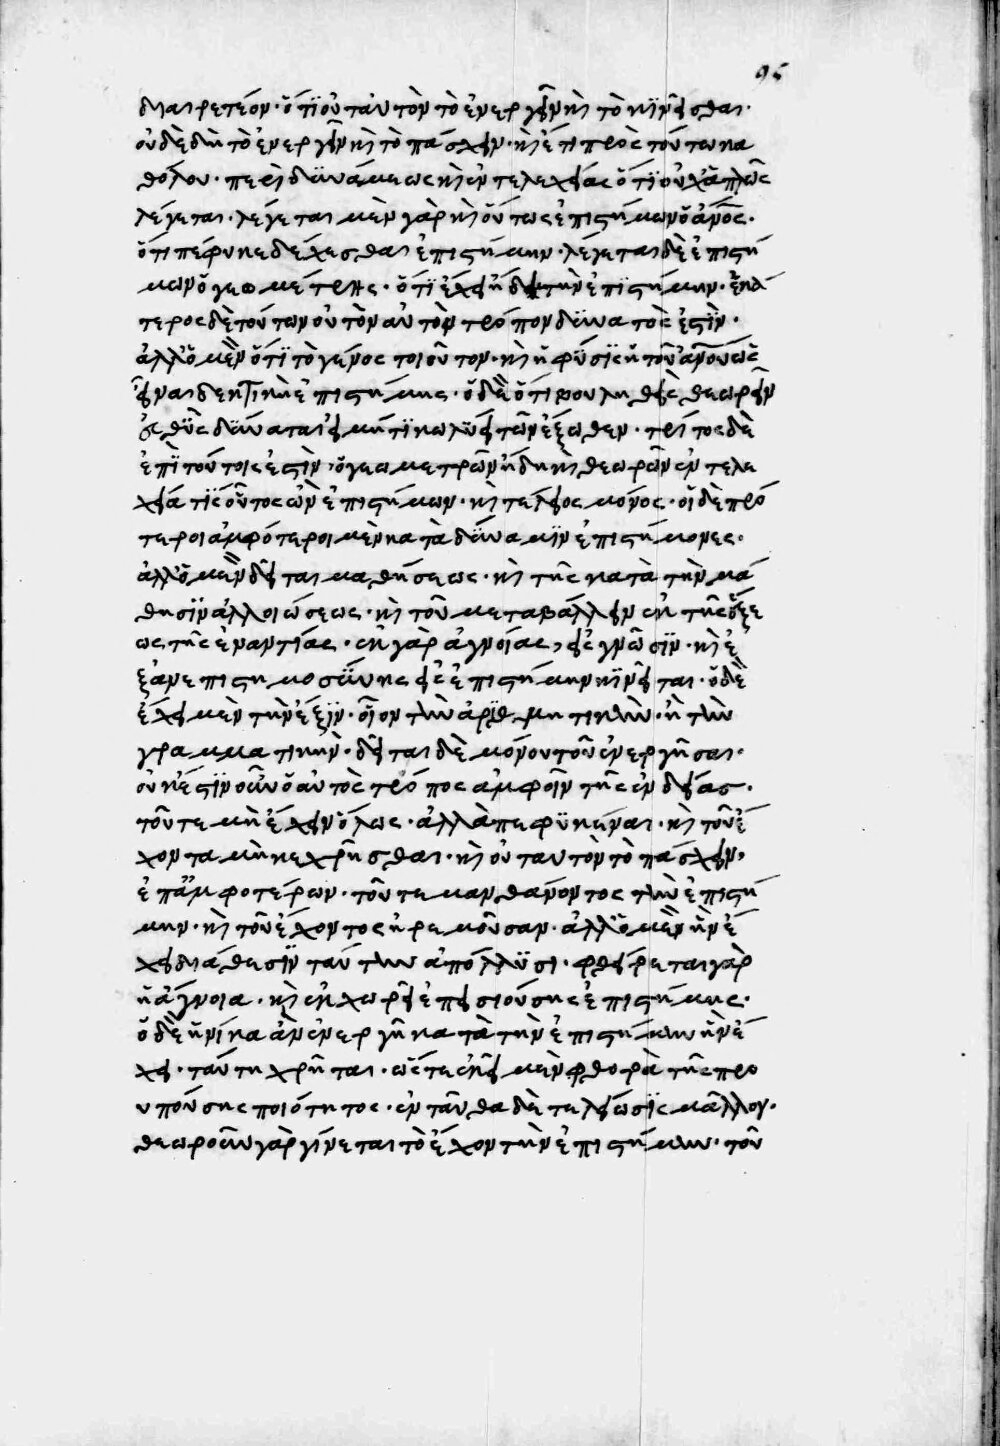 95
διαιρετέον· ὅτι οὐ ταὐτὸν τὸ ἐνεργεῖν κὶ τὸ κινεῖσθαι·
οὐδὲ δὴ τὸ ἐνεργεῖν κὶ τὸ πάσχειν· κὶ ἔτι πρὸς τούτω κα
θόλου· περὶ δυνάμεως κὶ ἐντελεχείας ὅτι οὐχ ἁπλῶς
λέγεται· λέγεται μὲν γὰρ κὶ οὕτως ἐπιστήμων ὁ ἄνος·
ὅτι πέφυκε δέχεσθαι ἐπιστήμην· λέγεται δὲ ἐπιστή
μων ὁ γεωμέτρης· ὅτι ἔχει ἤδη τὴν ἐπιστήμην· ἑκά
τερος δὲ τούτων οὐ τὸν αὐτὸν τρόπον δυνατός ἐστιν·
ἀλλ' ὁ μὲν ὅτι τὸ γένος τοιοῦτον· κὶ ἡ φύσις ἡ τοῦ ἀνου ὡς
εἶναι δεκτικὴ ἐπιστήμης· ὁ δὲ ὅτι βουληθεὶς θεωρεῖν
εὐθὺς δύναται εἰ μή τι κωλύει τῶν ἔξωθεν· τρίτος δὲ
ἐπὶ τούτοις ἐστὶν· ὁ γεωμετρῶν ἤδη κὶ θεωρῶν ἐντελε
χείᾳ τίς οὗτος ὢν ἐπιστήμων· κὶ τέλειος μόνος· οἱ δὲ πρό
τεροι ἀμφότεροι μὲν κατὰ δύναμιν ἐπιστήμονες·
ἀλλ' ὁ μὲν δεῖται μαθήσεως· κὶ τῆς κατὰ τὴν μά
θησιν ἀλλοιώσεως· κὶ τοῦ μεταβάλλειν ἐκ τῆς ἕξε
ως τῆς ἐναντίας· ἐκ γὰρ ἀγνοίας, εἰς γνῶσιν· κὶ ἐ
ξ ἀνεπιστημοσύνης εἰς ἐπιστήμην κινεῖται· ὁ δὲ
ἔχει μὲν τὴν ἕξιν· οἷον τὴν ἀριθμητικὴν· ἢ τὴν
γραμματικήν· δεῖται δὲ μόνον τοῦ ἐνεργῆσαι·
οὐκ ἔστιν οὖν ὁ αὐτὸς τρόπος ἀμφοῖν τῆς ἐνδείας·
τοῦ τε μὴ ἔχειν ὅλως· ἀλλὰ πεφυκέναι· κὶ τοῦ ἔ
χοντα μὴ κεχρῆσθαι· κὶ οὐ ταυτὸν τὸ πάσχειν,
ἐπ' ἀμφοτέρων· τοῦ τε μανθάνοντος τὴν ἐπιστή
μην· κὶ τοῦ ἔχοντος ἠρεμοῦσαν· ἀλλ' ὁ μὲν ἣν ἔ
χει διάθεσιν ταύτην ἀπόλλυσι· φθείρεται γὰρ
ἡ ἄγνοια· κὶ ἐκχωρεῖ ἐπεισιούσης ἐπιστήμης·
ὁ δὲ ἡνίκα ἂν ἐνεργῇ κατὰ τὴν ἐπιστήμην ἣν ἔ
χει· ταύτῃ χρῆται· ὥστε ἐκεῖ μὲν φθορὰ τῆς προ
υπούσης ποιότητος· ἐνταῦθα δὲ τελείωσις μᾶλλον·
θεωροῦν γὰρ γίνεται τὸ ἔχον τὴν ἐπιστήμην· τοῦ